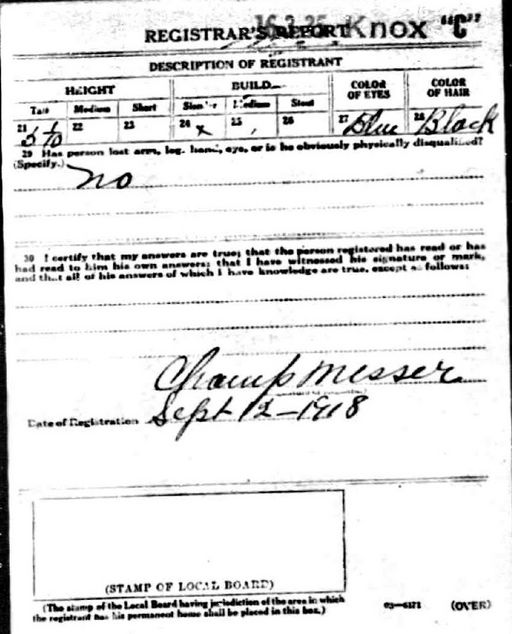 16-2-25-Knox "C"
REGISTRAR'S REPORT
DESCRIPTION OF REGISTRANT
HEIGHT BUILD COLOR OF EYES COLOR OF HAIR
Tall Medium Short Slender Medium Stout
21 22 23 24 x 25 26 27 Blue 28 Black
29 Has person lost arm, leg, hand, eye, or is he obviously physically disqualified?
(Specify.) no
30 I certify that my answers are true; that the person registered has read or has
had read to him his own answers; that I have witnessed his signature or mark,
and that all of his answers of which I have knowledge are true, except as follows:
Champ Messer
Date of Registration Sept 12-1918
(STAMP OF LOCAL BOARD)
(The stamp of the Local Board having jurisdiction of the area in which
the registrant has his permanent home shall be placed in this box.)
03-6171 (OVER)